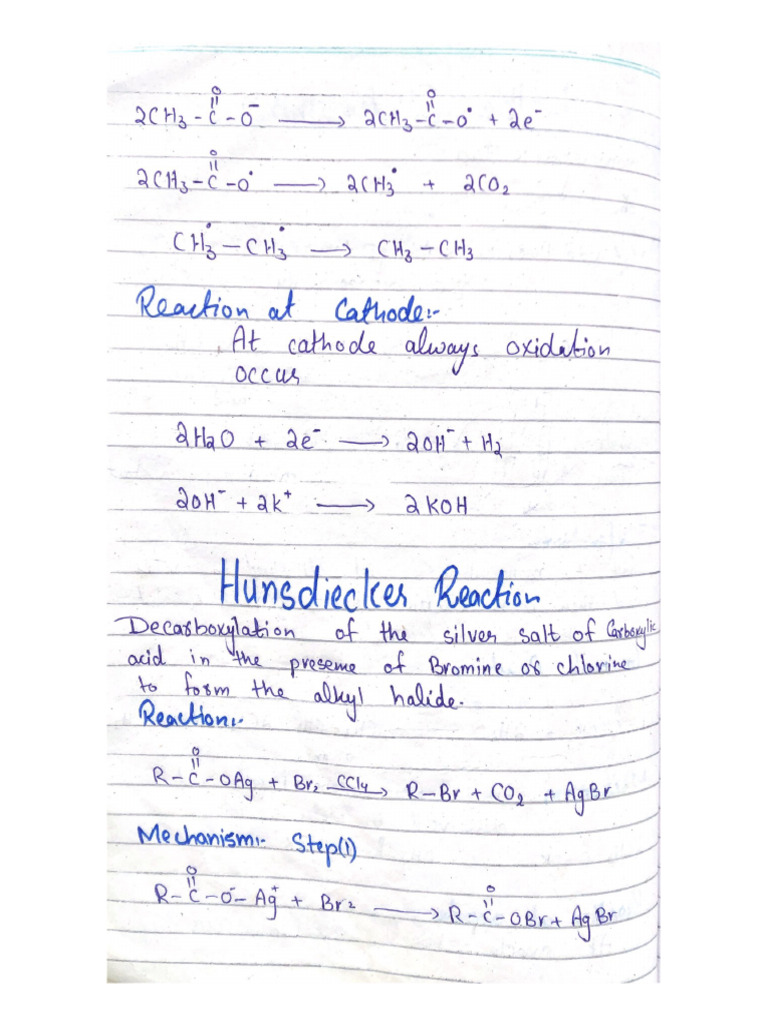 2CH₃-C(=O)-O⁻ ⟶ 2CH₃-C(=O)-O• + 2e⁻
2CH₃-C(=O)-O• ⟶ 2CH₃• + 2CO₂
CH₃•-CH₃• ⟶ CH₃-CH₃
Reaction at Cathode:-
At cathode always oxidation
occur
2H₂O + 2e⁻ ⟶ 2OH⁻ + H₂
2OH⁻ + 2K⁺ ⟶ 2KOH
Hunsdiecker Reaction
Decarboxylation of the silver salt of Carboxylic
acid in the presence of Bromine or chlorine
to form the alkyl halide.
Reaction:-
R-C(=O)-OAg + Br₂ ⟶(CCl₄) R-Br + CO₂ + AgBr
Mechanism:- Step(1)
R-C(=O)-O⁻-Ag⁺ + Br₂ ⟶ R-C(=O)-OBr + AgBr